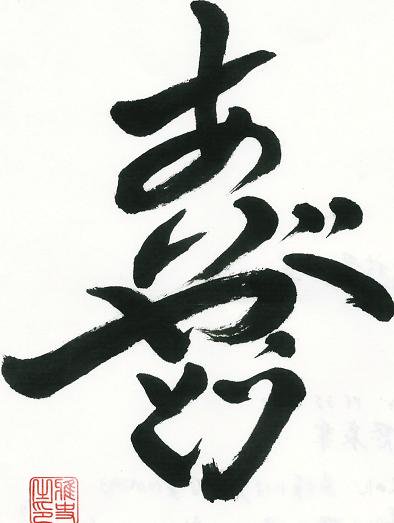 ありがとう